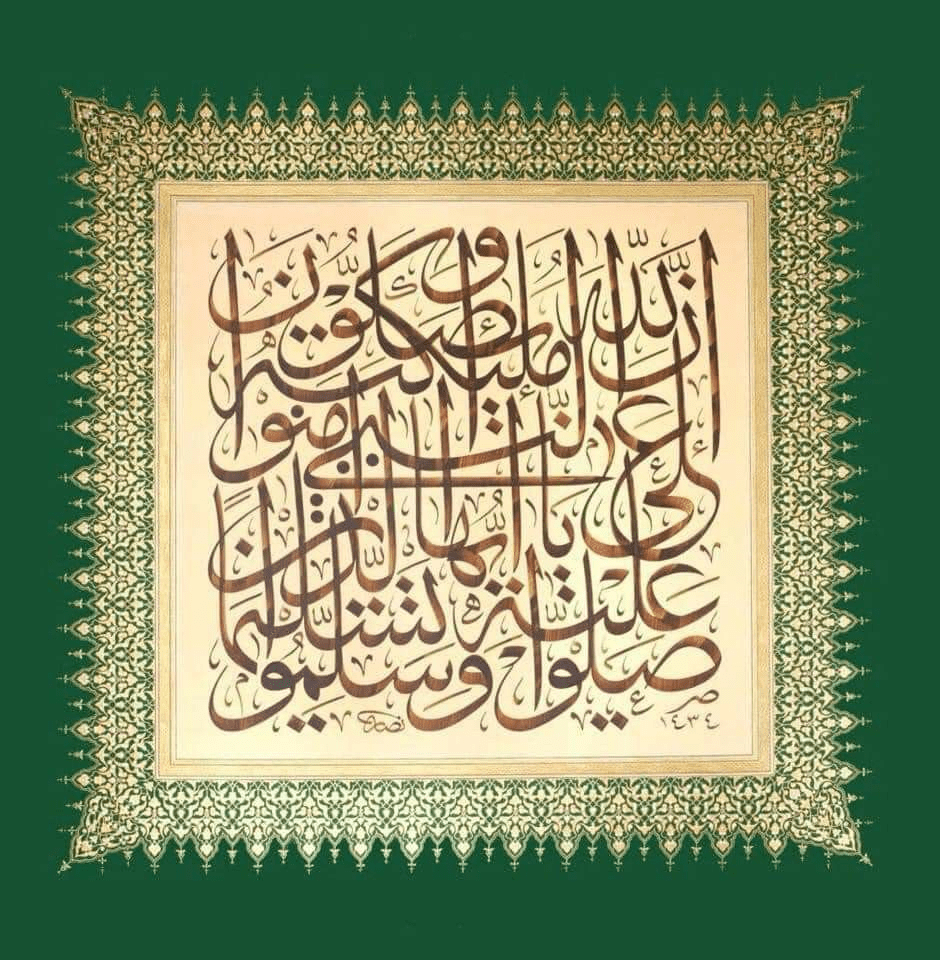 إن الله وملئكته يصلون
على النبي يا أيها الذين امنوا
صلوا عليه وسلموا تسليما
١٤٣٤